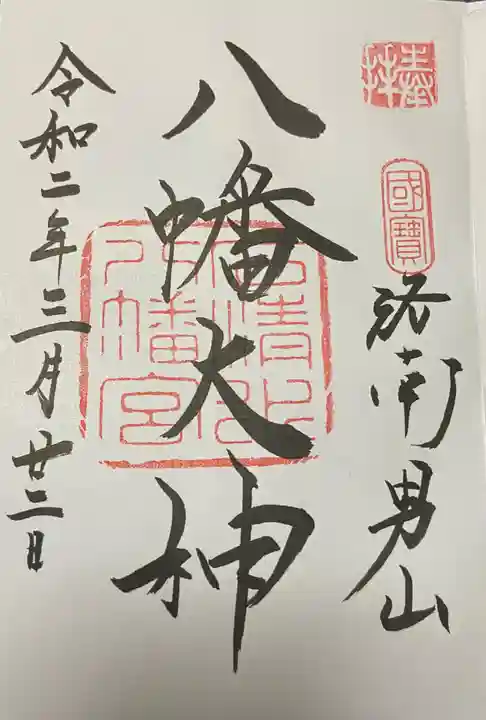 奉拝
國寶
洛南男山
八幡大神
石清水
八幡宮
令和二年三月廿二日